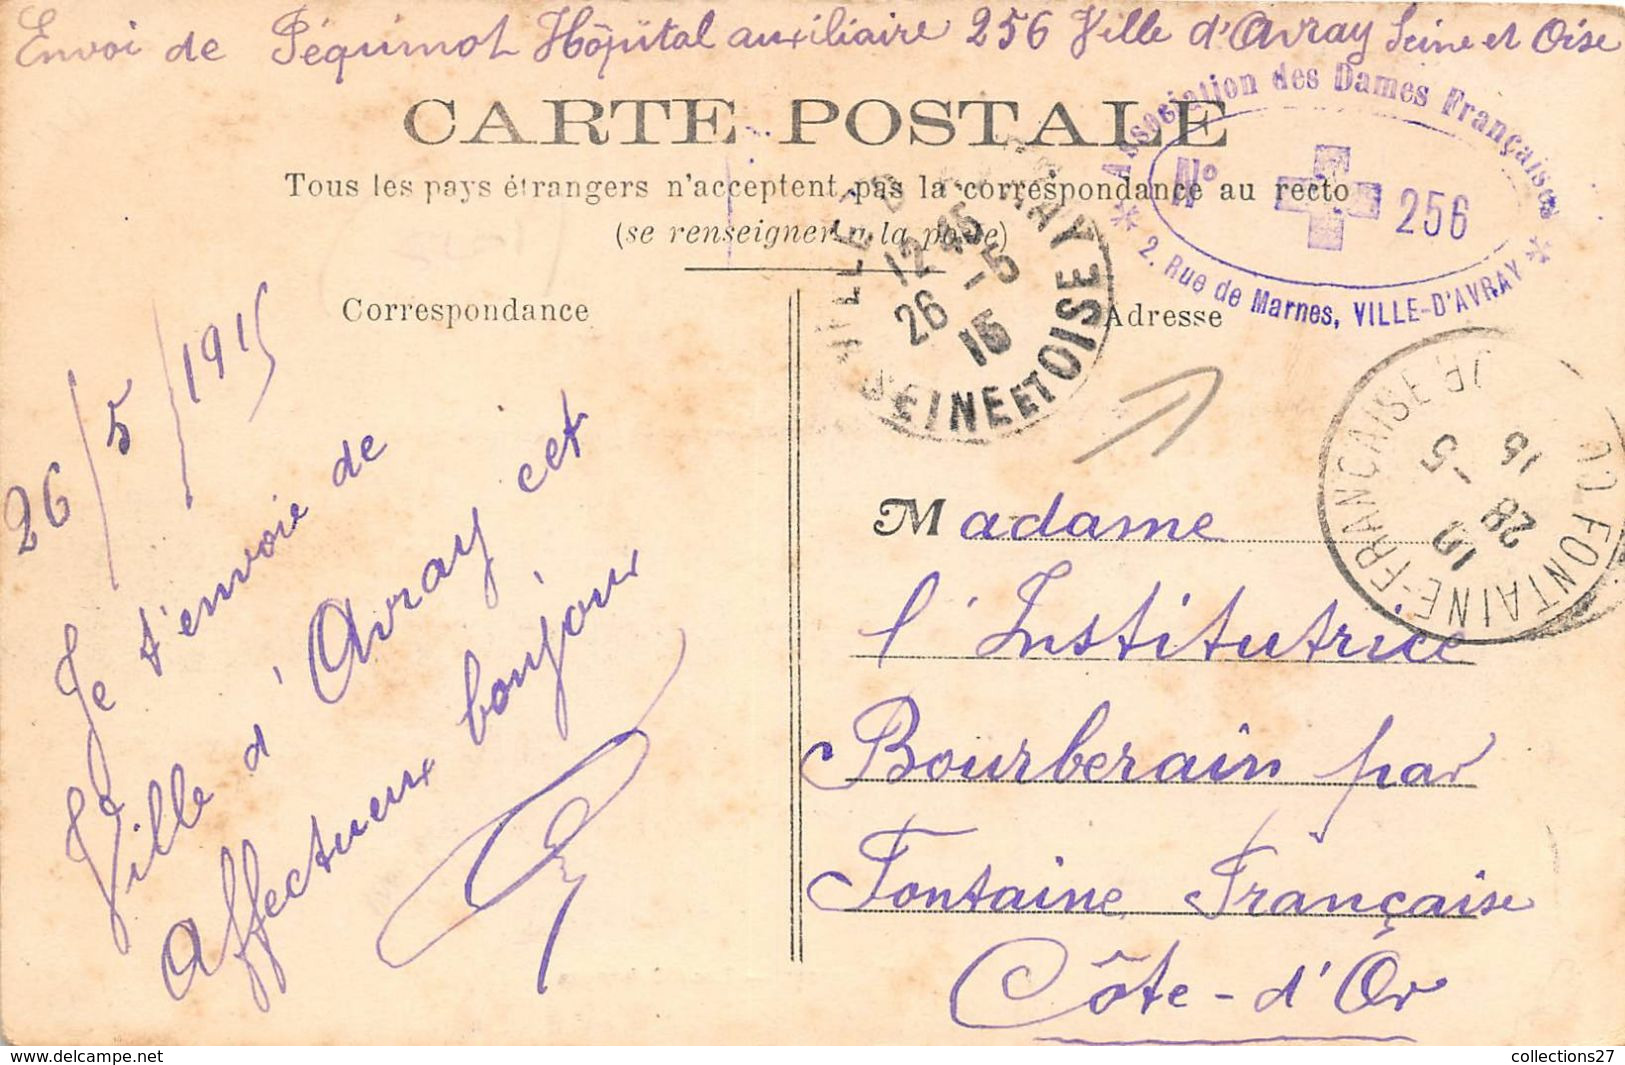 Envoi de Péquinot Hôpital auxiliaire 256 Ville d'Avray Seine et Oise
CARTE POSTALE
Tous les pays étrangers n'acceptent pas la correspondance au recto
(se renseigner à la poste)
Correspondance
Adresse
Association des Dames Françaises
N° 256
* 2, Rue de Marnes, VILLE-D'AVRAY *
VILLE D'AVRAY
12 45
26 -5
15
SEINE ET OISE
FONTAINE-FRANÇAISE
10
28 -5
15
26/5/1915
Je t'envoie de
Ville d'Avray cet
affectueux bonjour
Madame
l'Institutrice
Bourberain par
Fontaine Française
Côte-d'Or
collections27